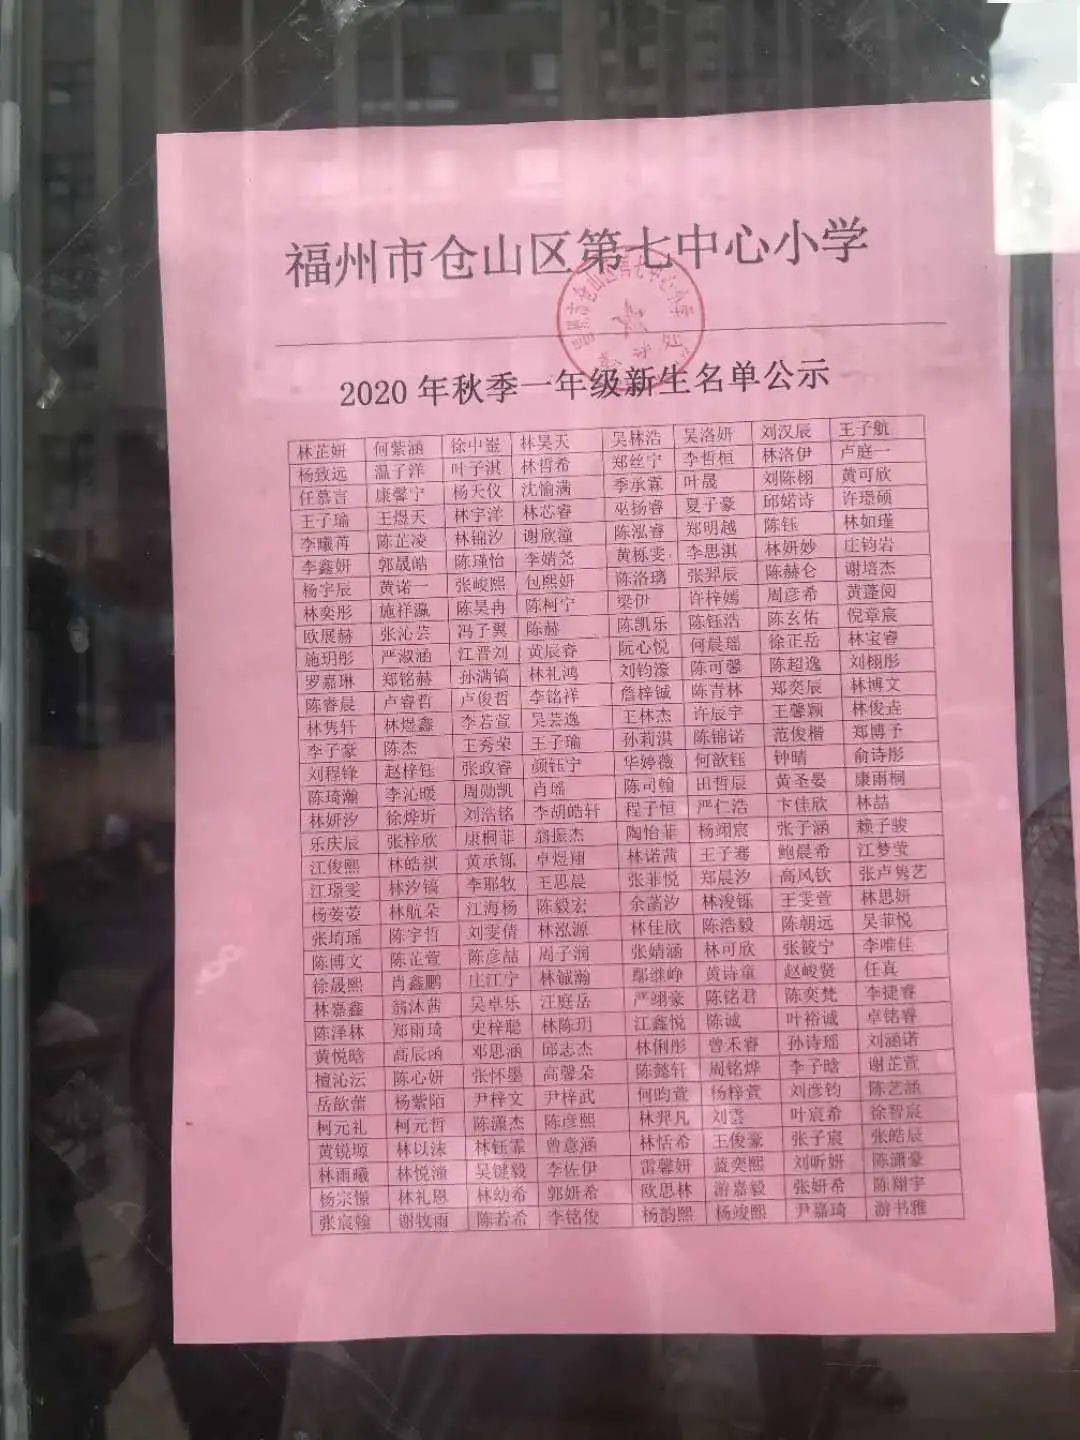 福州市仓山区第七中心小学
2020年秋季一年级新生名单公示
林芷妍 何紫涵 徐中崟 林昊天 吴林浩 吴洛妍 刘汉辰 王子航
杨致远 温子洋 叶子淇 林哲希 郑丝宁 李哲桓 林洛伊 卢庭一
任慕言 康馨宁 杨天仪 沈愉满 季承霖 叶晟 刘陈栩 黄可欣
王子瑜 王煜天 林宇洋 林芯睿 巫扬睿 夏子豪 邱婼诗 许璟硕
李曦苒 陈芷凌 林锦汐 谢欣潼 陈泓睿 郑明越 陈钰 林如瑾
李鑫妍 郭晟皓 陈瑾怡 李婧尧 黄栎雯 李思淇 林妍妙 庄钧岩
杨宇辰 黄诺一 张峻熙 包熙妍 陈洛璃 张羿辰 陈赫仑 谢培杰
林奕彤 施祥瀛 陈昊冉 陈柯宁 梁伊 许梓嫣 周彦希 黄蓬阅
欧展赫 张沁芸 冯子翼 陈赫 陈凯乐 陈钰浩 陈玄佑 倪章宸
施玥彤 严淑涵 江晋刘 黄辰睿 阮心悦 何晨瑶 徐正岳 林宝睿
罗嘉琳 郑铭赫 孙满镐 林礼鸿 刘钧濠 陈可馨 陈超逸 刘栩彤
陈睿晨 卢睿哲 卢俊哲 李铭祥 詹梓铖 陈青林 郑奕辰 林博文
林隽轩 林煜鑫 李若萱 吴芸逸 王林杰 许辰宇 王馨颖 林俊垚
李子豪 陈杰 王秀荣 王子瑜 孙莉淇 陈锦诺 范俊楷 郑博予
刘程锋 赵梓钰 张政睿 颜钰宁 华婷薇 何歆钰 钟晴 俞诗彤
陈琦瀚 李沁暖 周勋凯 肖瑶 陈司翰 田哲辰 黄圣晏 康雨桐
林妍汐 徐烨圻 刘浩铭 李胡皓轩 程子恒 严仁浩 卞佳欣 林喆
乐庆辰 张梓欣 康桐菲 翁振杰 陶怡菲 杨翊宸 张子涵 赖子骏
江俊熙 林皓祺 黄承铄 卓煜翔 林诺茜 王子骞 鲍晨希 江梦莹
江璟雯 林汐镐 李耶牧 王思晨 张菲悦 郑晨汐 高风钦 张卢隽艺
杨荌荌 林航朵 江海杨 陈毅宏 余菡汐 林浚铄 王雯萱 林思妍
张堉瑶 陈宇哲 刘雯倩 林泓源 林佳欣 陈浩毅 陈朝远 吴菲悦
陈博文 陈芷萱 陈彦喆 周子润 张婧涵 林可欣 张筱宁 李唯佳
徐晟熙 肖鑫鹏 庄江宁 林铖瀚 鄢继峥 黄诗童 赵峻贤 任真
林嘉鑫 翁沐茜 吴卓乐 汪庭岳 严翊豪 陈铭君 陈奕梵 李捷睿
陈泽林 郑雨琦 史梓聪 林陈玥 江鑫悦 陈诚 叶裕诚 卓铭睿
黄悦晗 高辰函 邓思涵 邱志杰 林俐彤 曾禾睿 孙诗瑶 刘涵诺
檀沁沄 陈心妍 张怀墨 高馨朵 陈懿轩 周铭烨 李子晗 谢芷萱
岳歆蕾 杨紫陌 尹梓文 尹梓武 何昀萱 杨梓萱 刘彦钧 陈艺涵
柯元礼 柯元哲 陈潇杰 陈彦熙 林羿凡 刘雲 叶宸希 徐智宸
黄锐塬 林以沫 林钰霏 曾意涵 林恬希 王俊豪 张子宸 张皓辰
林雨曦 林悦潼 吴键毅 李佐伊 雷馨妍 蓝奕熙 刘昕妍 陈潇豪
杨宗憬 林礼恩 林幼希 郭妍希 欧思林 游嘉毅 张妍希 陈翔宇
张宸翰 谢牧雨 陈若希 李铭俊 杨韵熙 杨竣熙 尹嘉琦 游书雅